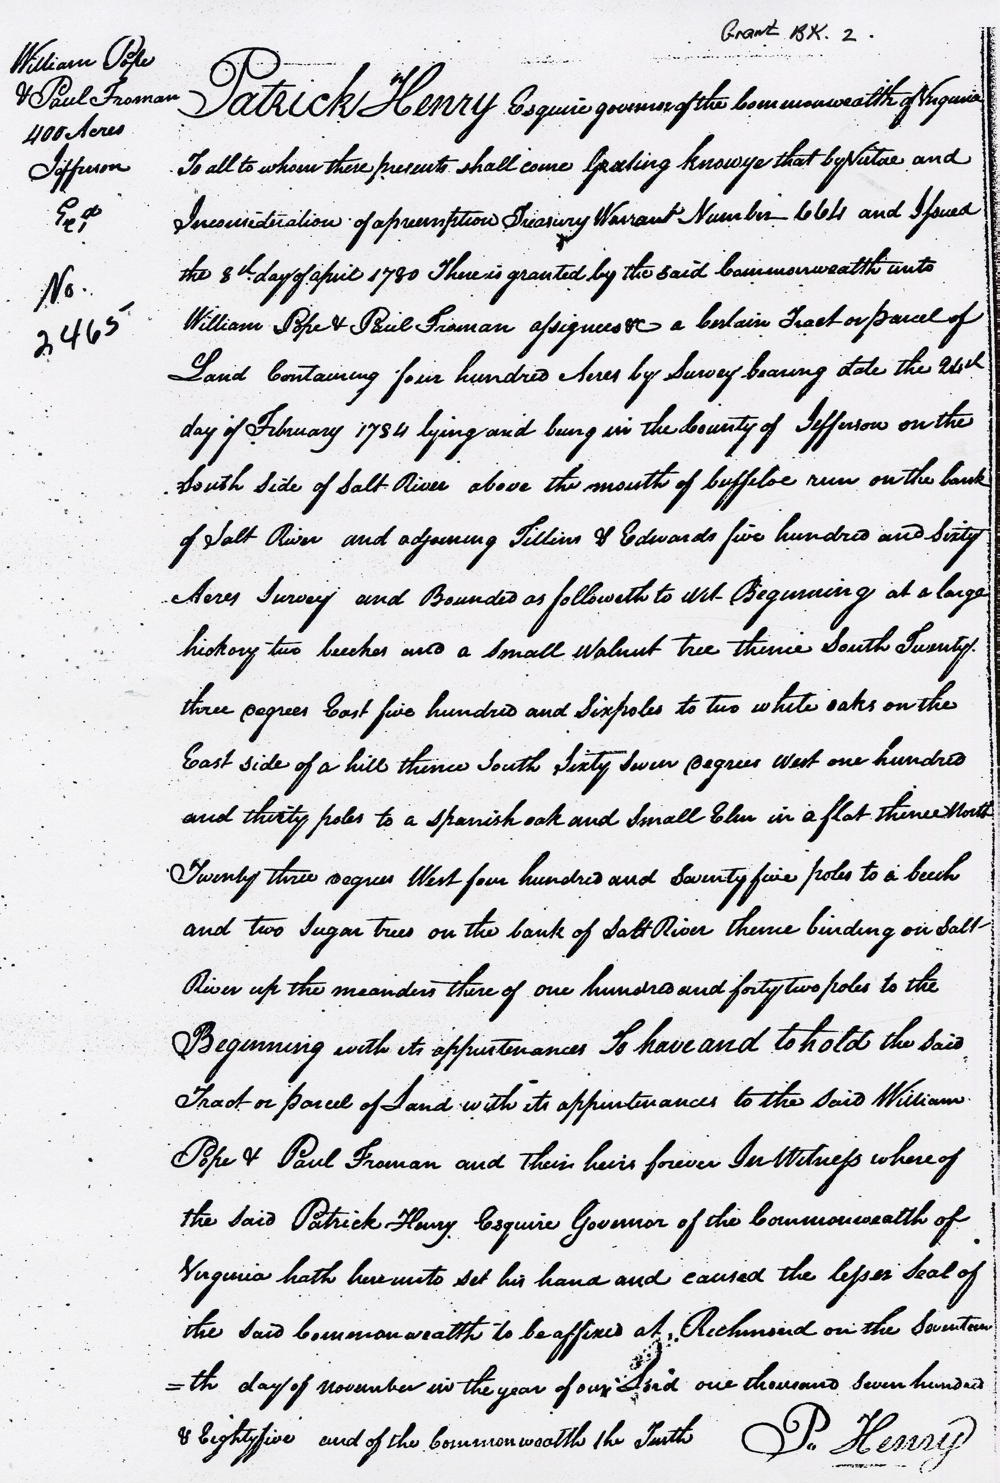 Grant BK. 2.
William Pope
& Paul Froman
400 Acres
Jefferson
Exd
No.
2465
Patrick Henry Esquire governor of the Commonwealth of Virginia
To all to whom these presents shall come Greeting know ye that by Virtue and
Inconsideration of a preemption Treasury Warrant Number 664 and Issued
the 8th day of april 1780 There is granted by the said Commonwealth unto
William Pope & Paul Froman assignees &c a Certain Tract or parcel of
Land Containing four hundred Acres by Survey bearing date the 24th
day of February 1784 lying and being in the County of Jefferson on the
South side of Salt River above the mouth of buffeloe run on the bank
of Salt River and adjoining & Edwards five hundred and Sixty
Acres Survey and Bounded as followeth to wit Beginning at a large
hickory two beeches and a small Walnut tree thence South Twenty
three degrees East five hundred and Six poles to two white oaks on the
East side of a hill thence South Sixty Seven degrees West one hundred
and thirty poles to a spanish oak and Small Elm in a flat thence North
Twenty three degrees West four hundred and Seventy five poles to a beech
and two Sugar trees on the bank of Salt River thence binding on Salt
River up the meanders there of one hundred and forty two poles to the
Beginning with its appurtenances To have and to hold the said
Tract or parcel of Land with its appurtenances to the said William
Pope & Paul Froman and their heirs forever In Witness where of
the said Patrick Henry Esquire Governor of the Commonwealth of
Virginia hath here unto set his hand and caused the lesser Seal of
the said Commonwealth to be affixed at Richmond on the Seventeen
=th day of november in the year of our Lord one thousand seven hundred
& Eighty five and of the Commonwealth the Tenth P. Henry